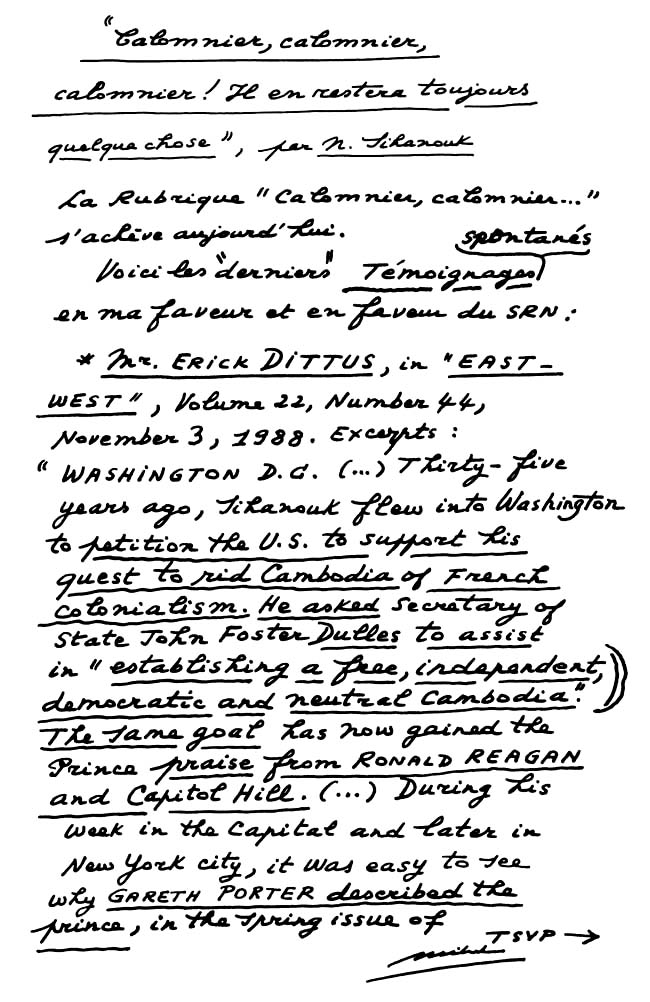 "Calomnier, calomnier,
calomnier! Il en restera toujours
quelque chose", par N. Sihanouk
La Rubrique "Calomnier, calomnier..."
s'achève aujourd'hui.
spontanés
Voici les "derniers" Témoignages
en ma faveur et en faveur du SRN :
* Mr. ERICK DITTUS, in "EAST-
WEST", Volume 22, Number 44,
November 3, 1988. Excerpts :
"WASHINGTON D.C. (...) Thirty-five
years ago, Sihanouk flew into Washington
to petition the U.S. to support his
quest to rid Cambodia of French
colonialism. He asked Secretary of
State John Foster Dulles to assist
in "establishing a free, independent,
democratic and neutral Cambodia."
The same goal has now gained the
Prince praise from RONALD REAGAN
and Capitol Hill. (...) During his
week in the Capital and later in
New York city, it was easy to see
why GARETH PORTER described the
prince, in the spring issue of
TSVP →